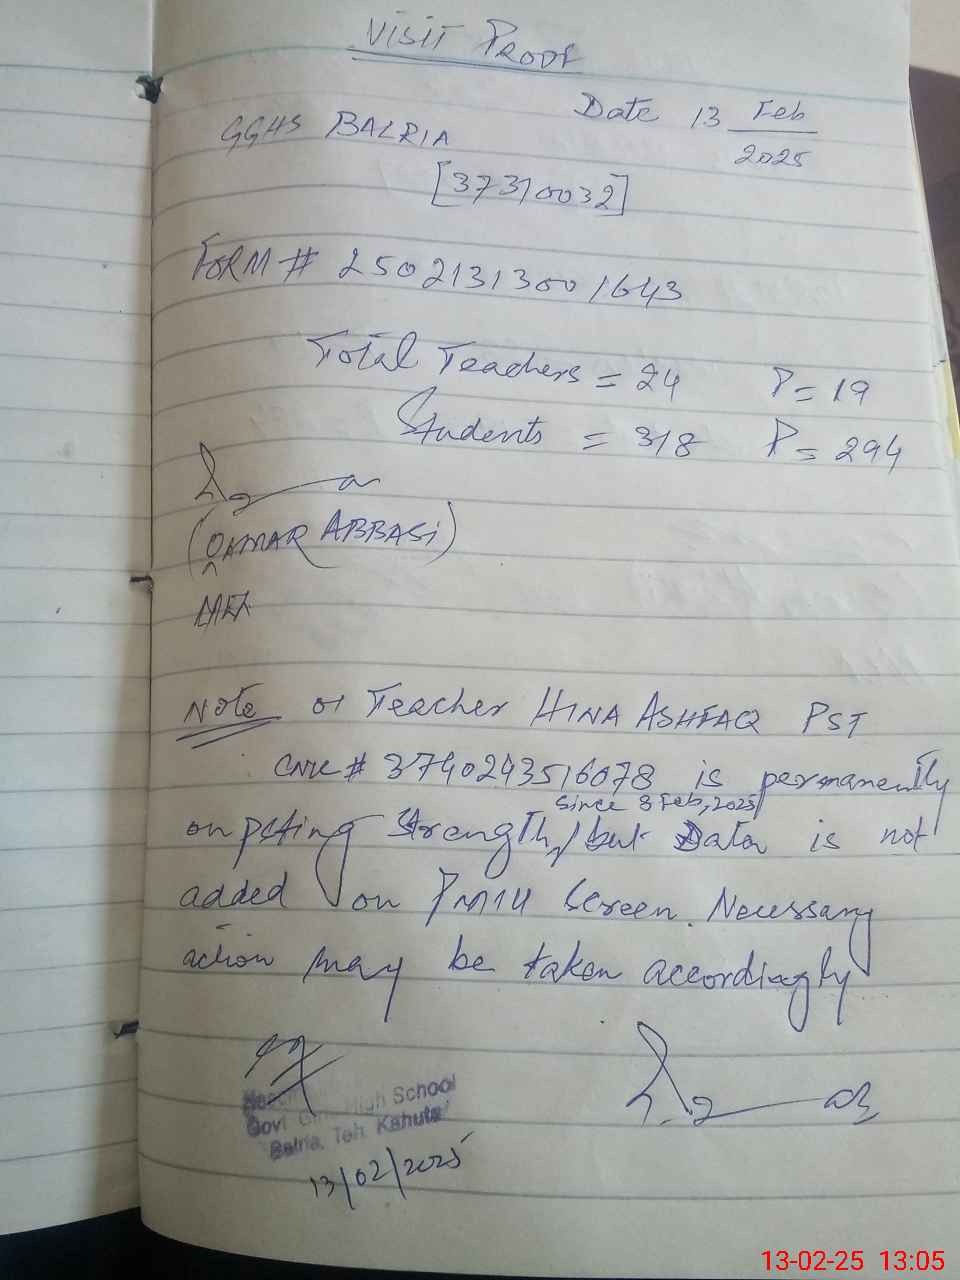 VISIT PROOF
Date 13 Feb
2025
GGHS BALRIA
[37310032]
FORM # 25021313001643
Total Teachers = 24 P = 19
Students = 318 P = 294
(QAMAR ABBASI)
MEA
Note 01 Teacher HINA ASHFAQ PST
CNIC # 3740243516078 is permanently
since 8 Feb, 2025
on strength, but Data is not
added on screen. Necessary
action may be taken accordingly
High School
Govt
Balria, Teh. Kahuta
13/02/2025
13-02-25 13:05